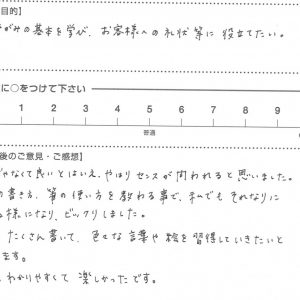 目的】
がみの基本を学び、お客様への礼状等に役立てたい。
に○をつけて下さい
1 2 3 4 5 6 7 8 9
普通
後のご意見・ご感想】
じゃなくて良いとはいえ、やはりセンスが問われると思いました。
の書き方、筆の使い方を教わる事で、私でもそれなりに
様になり、ビックリしました。
たくさん書いて、色々な言葉や絵を習得していきたいと
ます。
わかりやすくて楽しかったです。